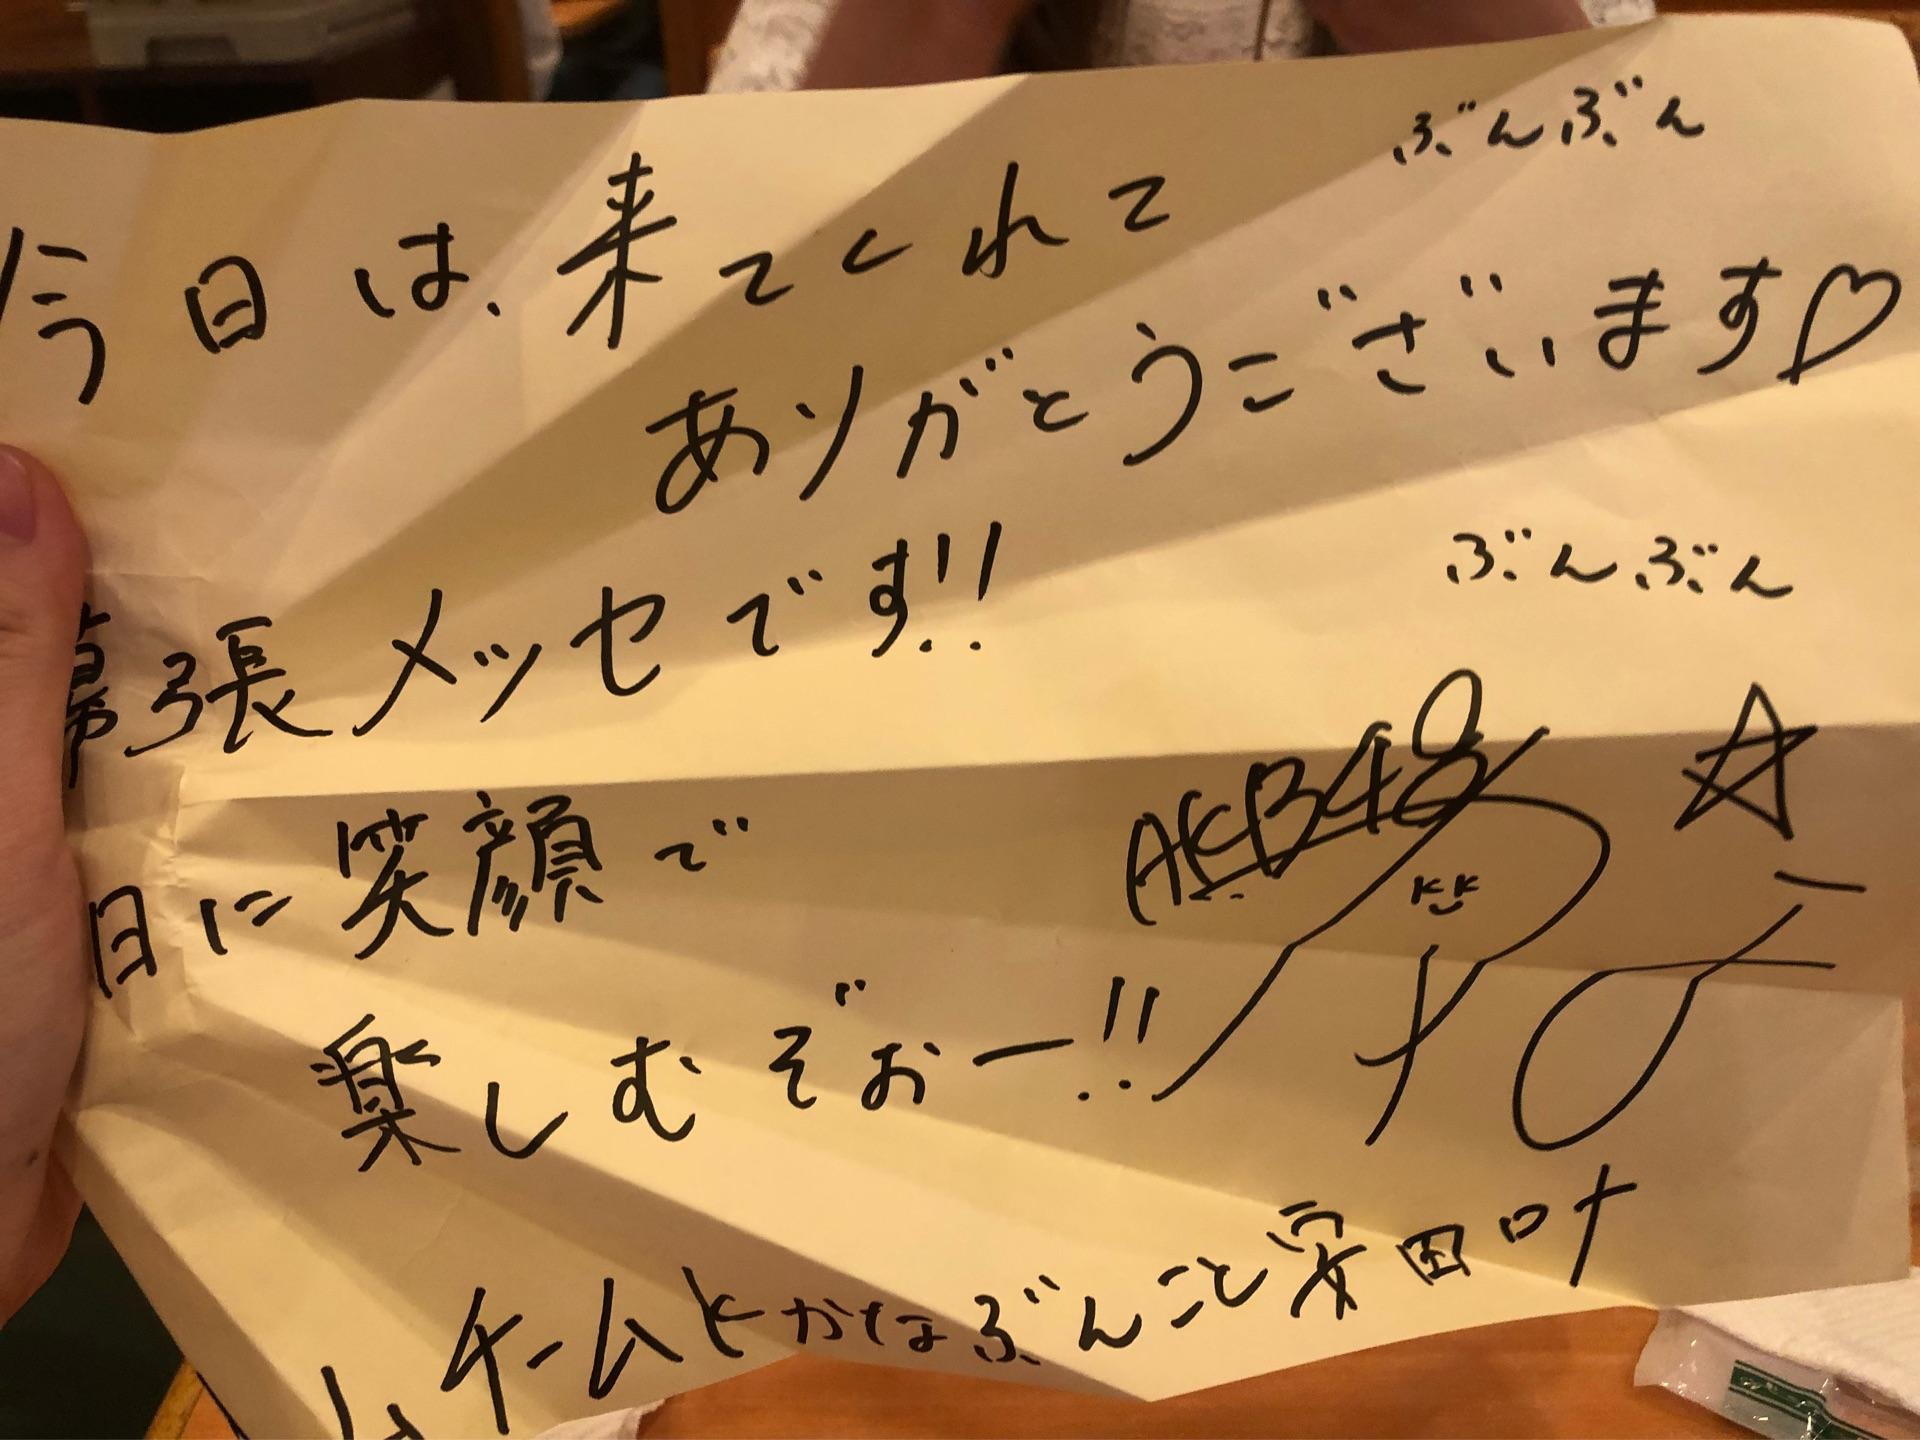 ぶんぶん
今日は、来てくれて
ありがとうございます♡
幕張メッセです!!
ぶんぶん
日に笑顔で
AKB48
楽しむぞぉー!!
チームK かなぶんこと安田ロナ